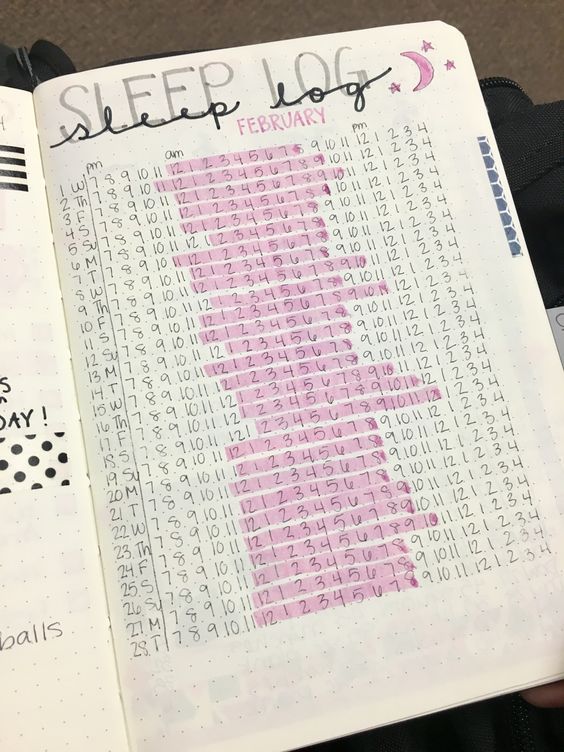 SLEEP LOG
sleep log
FEBRUARY
pm am pm
1 W 7 8 9 10 11 12 1 2 3 4 5 6 7 8 9 10 11 12 1 2 3 4
2 Th 7 8 9 10 11 12 1 2 3 4 5 6 7 8 9 10 11 12 1 2 3 4
3 F 7 8 9 10 11 12 1 2 3 4 5 6 7 8 9 10 11 12 1 2 3 4
4 S 7 8 9 10 11 12 1 2 3 4 5 6 7 8 9 10 11 12 1 2 3 4
5 Su 7 8 9 10 11 12 1 2 3 4 5 6 7 8 9 10 11 12 1 2 3 4
6 M 7 8 9 10 11 12 1 2 3 4 5 6 7 8 9 10 11 12 1 2 3 4
7 T 7 8 9 10 11 12 1 2 3 4 5 6 7 8 9 10 11 12 1 2 3 4
8 W 7 8 9 10 11 12 1 2 3 4 5 6 7 8 9 10 11 12 1 2 3 4
9 Th 7 8 9 10 11 12 1 2 3 4 5 6 7 8 9 10 11 12 1 2 3 4
10 F 7 8 9 10 11 12 1 2 3 4 5 6 7 8 9 10 11 12 1 2 3 4
11 S 7 8 9 10 11 12 1 2 3 4 5 6 7 8 9 10 11 12 1 2 3 4
12 Su 7 8 9 10 11 12 1 2 3 4 5 6 7 8 9 10 11 12 1 2 3 4
13 M 7 8 9 10 11 12 1 2 3 4 5 6 7 8 9 10 11 12 1 2 3 4
14 T 7 8 9 10 11 12 1 2 3 4 5 6 7 8 9 10 11 12 1 2 3 4
15 W 7 8 9 10 11 12 1 2 3 4 5 6 7 8 9 10 11 12 1 2 3 4
16 Th 7 8 9 10 11 12 1 2 3 4 5 6 7 8 9 10 11 12 1 2 3 4
17 F 7 8 9 10 11 12 1 2 3 4 5 6 7 8 9 10 11 12 1 2 3 4
18 S 7 8 9 10 11 12 1 2 3 4 5 6 7 8 9 10 11 12 1 2 3 4
19 Su 7 8 9 10 11 12 1 2 3 4 5 6 7 8 9 10 11 12 1 2 3 4
20 M 7 8 9 10 11 12 1 2 3 4 5 6 7 8 9 10 11 12 1 2 3 4
21 T 7 8 9 10 11 12 1 2 3 4 5 6 7 8 9 10 11 12 1 2 3 4
22 W 7 8 9 10 11 12 1 2 3 4 5 6 7 8 9 10 11 12 1 2 3 4
23 Th 7 8 9 10 11 12 1 2 3 4 5 6 7 8 9 10 11 12 1 2 3 4
24 F 7 8 9 10 11 12 1 2 3 4 5 6 7 8 9 10 11 12 1 2 3 4
25 S 7 8 9 10 11 12 1 2 3 4 5 6 7 8 9 10 11 12 1 2 3 4
26 Su 7 8 9 10 11 12 1 2 3 4 5 6 7 8 9 10 11 12 1 2 3 4
27 M 7 8 9 10 11 12 1 2 3 4 5 6 7 8 9 10 11 12 1 2 3 4
28 T 7 8 9 10 11 12 1 2 3 4 5 6 7 8 9 10 11 12 1 2 3 4
DAY!
balls